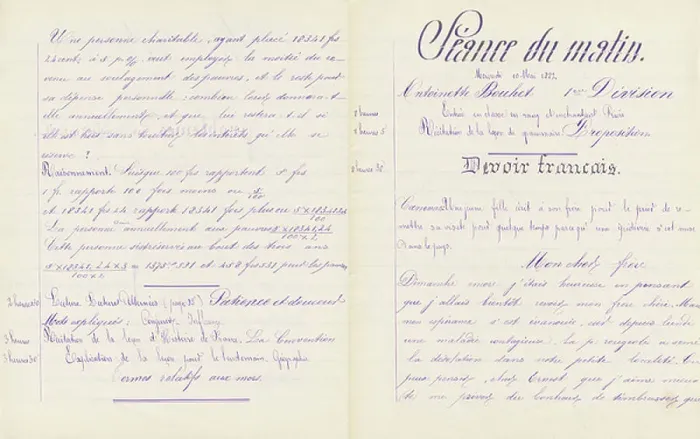 Une personne charitable, ayant placé 10341 frs
24 cent, à 5 p %, veut employer la moitié du re-
venu au soulagement des pauvres, et le reste pour
sa dépense personnelle; combien leur donnera-t-
elle annuellement, et que lui restera-t-il si
elle est trois ans sans toucher les intérêts qu'elle se
réserve?
Raisonnement. Puisque 100 frs rapportent 5 frs
1 fr. rapporte 100 fois moins ou 5/100
et 10341 frs 24 rapporte 10341 fois plus ou 5×10341,24/100
La personne annuellement aux pauvres 5×10341,24/100×2
Cette personne au bout des trois ans
5×10341,24×3/100×2
2 heures 30 Lecture (page 25) Patience et douceur
Mots expliqués:
3 heures Récitation de la leçon d'Histoire de France, La Convention
3 heures 30 Explication de la leçon pour le lendemain, Géographie
Termes relatifs aux mers.
Séance du matin.
Mercredi 10 Mai 1882
Antoinette Bouhet 1ère Division
8 heures Entrée en classe en rang et en chantant
8 heures 5 Récitation de la leçon de grammaire, Préposition
8 heures 30
Devoir français.
Canevas. Une jeune fille écrit à son frère pour le prier de re-
mettre sa visite pour quelque temps parce qu'une épidémie s'est
dans le pays.
Mon cher frère
Dimanche mars j'étais heureuse en pensant
que j'allais bientôt revoir mon frère chéri. Mais
mon espérance s'est évanouie, car depuis lundi
une maladie contagieuse: la
la désolation dans notre petite localité.
cher Ernest que j'aime mieux
te me priver du bonheur de t'embrasser que